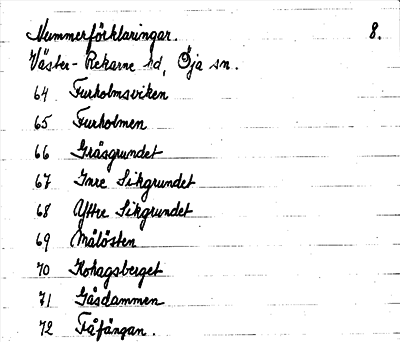 Nummerförklaringar. 8.
Väster-Rekarne hd, Öja sn.
64 Furholmsviken
65 Furholmen
66 Gråsgrundet
67 Inre Sikgrundet
68 Yttre Sikgrundet
69 Målösten
70 Hohagsberget
71 Gåsdammen
72 Fåfängan.